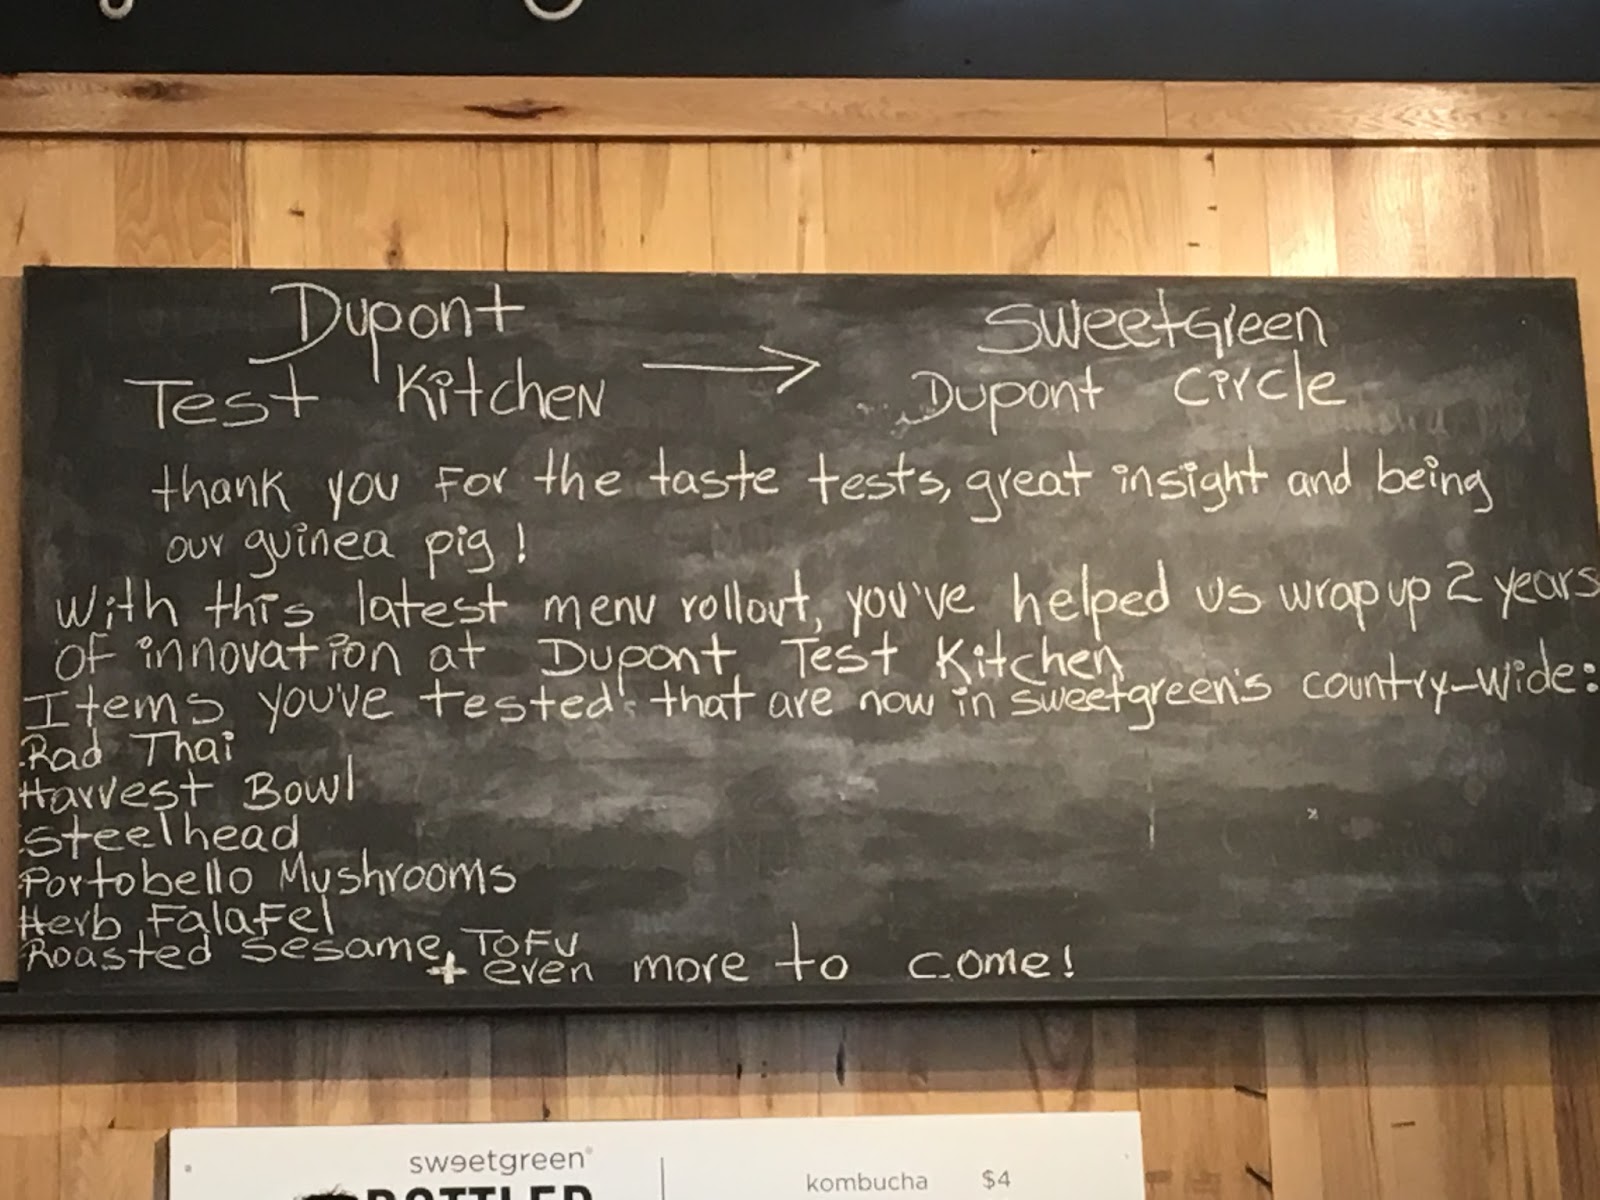 Dupont
Test Kitchen → Sweetgreen
Dupont Circle
thank you for the taste tests, great insight and being
our guinea pig!
With this latest menu rollout, you've helped us wrap up 2 years
of innovation at Dupont Test Kitchen
Items you've tested that are now in sweetgreen's country-wide:
Rad Thai
Harvest Bowl
Steelhead
Portobello Mushrooms
Herb Falafel
Roasted Sesame Tofu
+ even more to come!
sweetgreen®
BOTTLED
kombucha $4